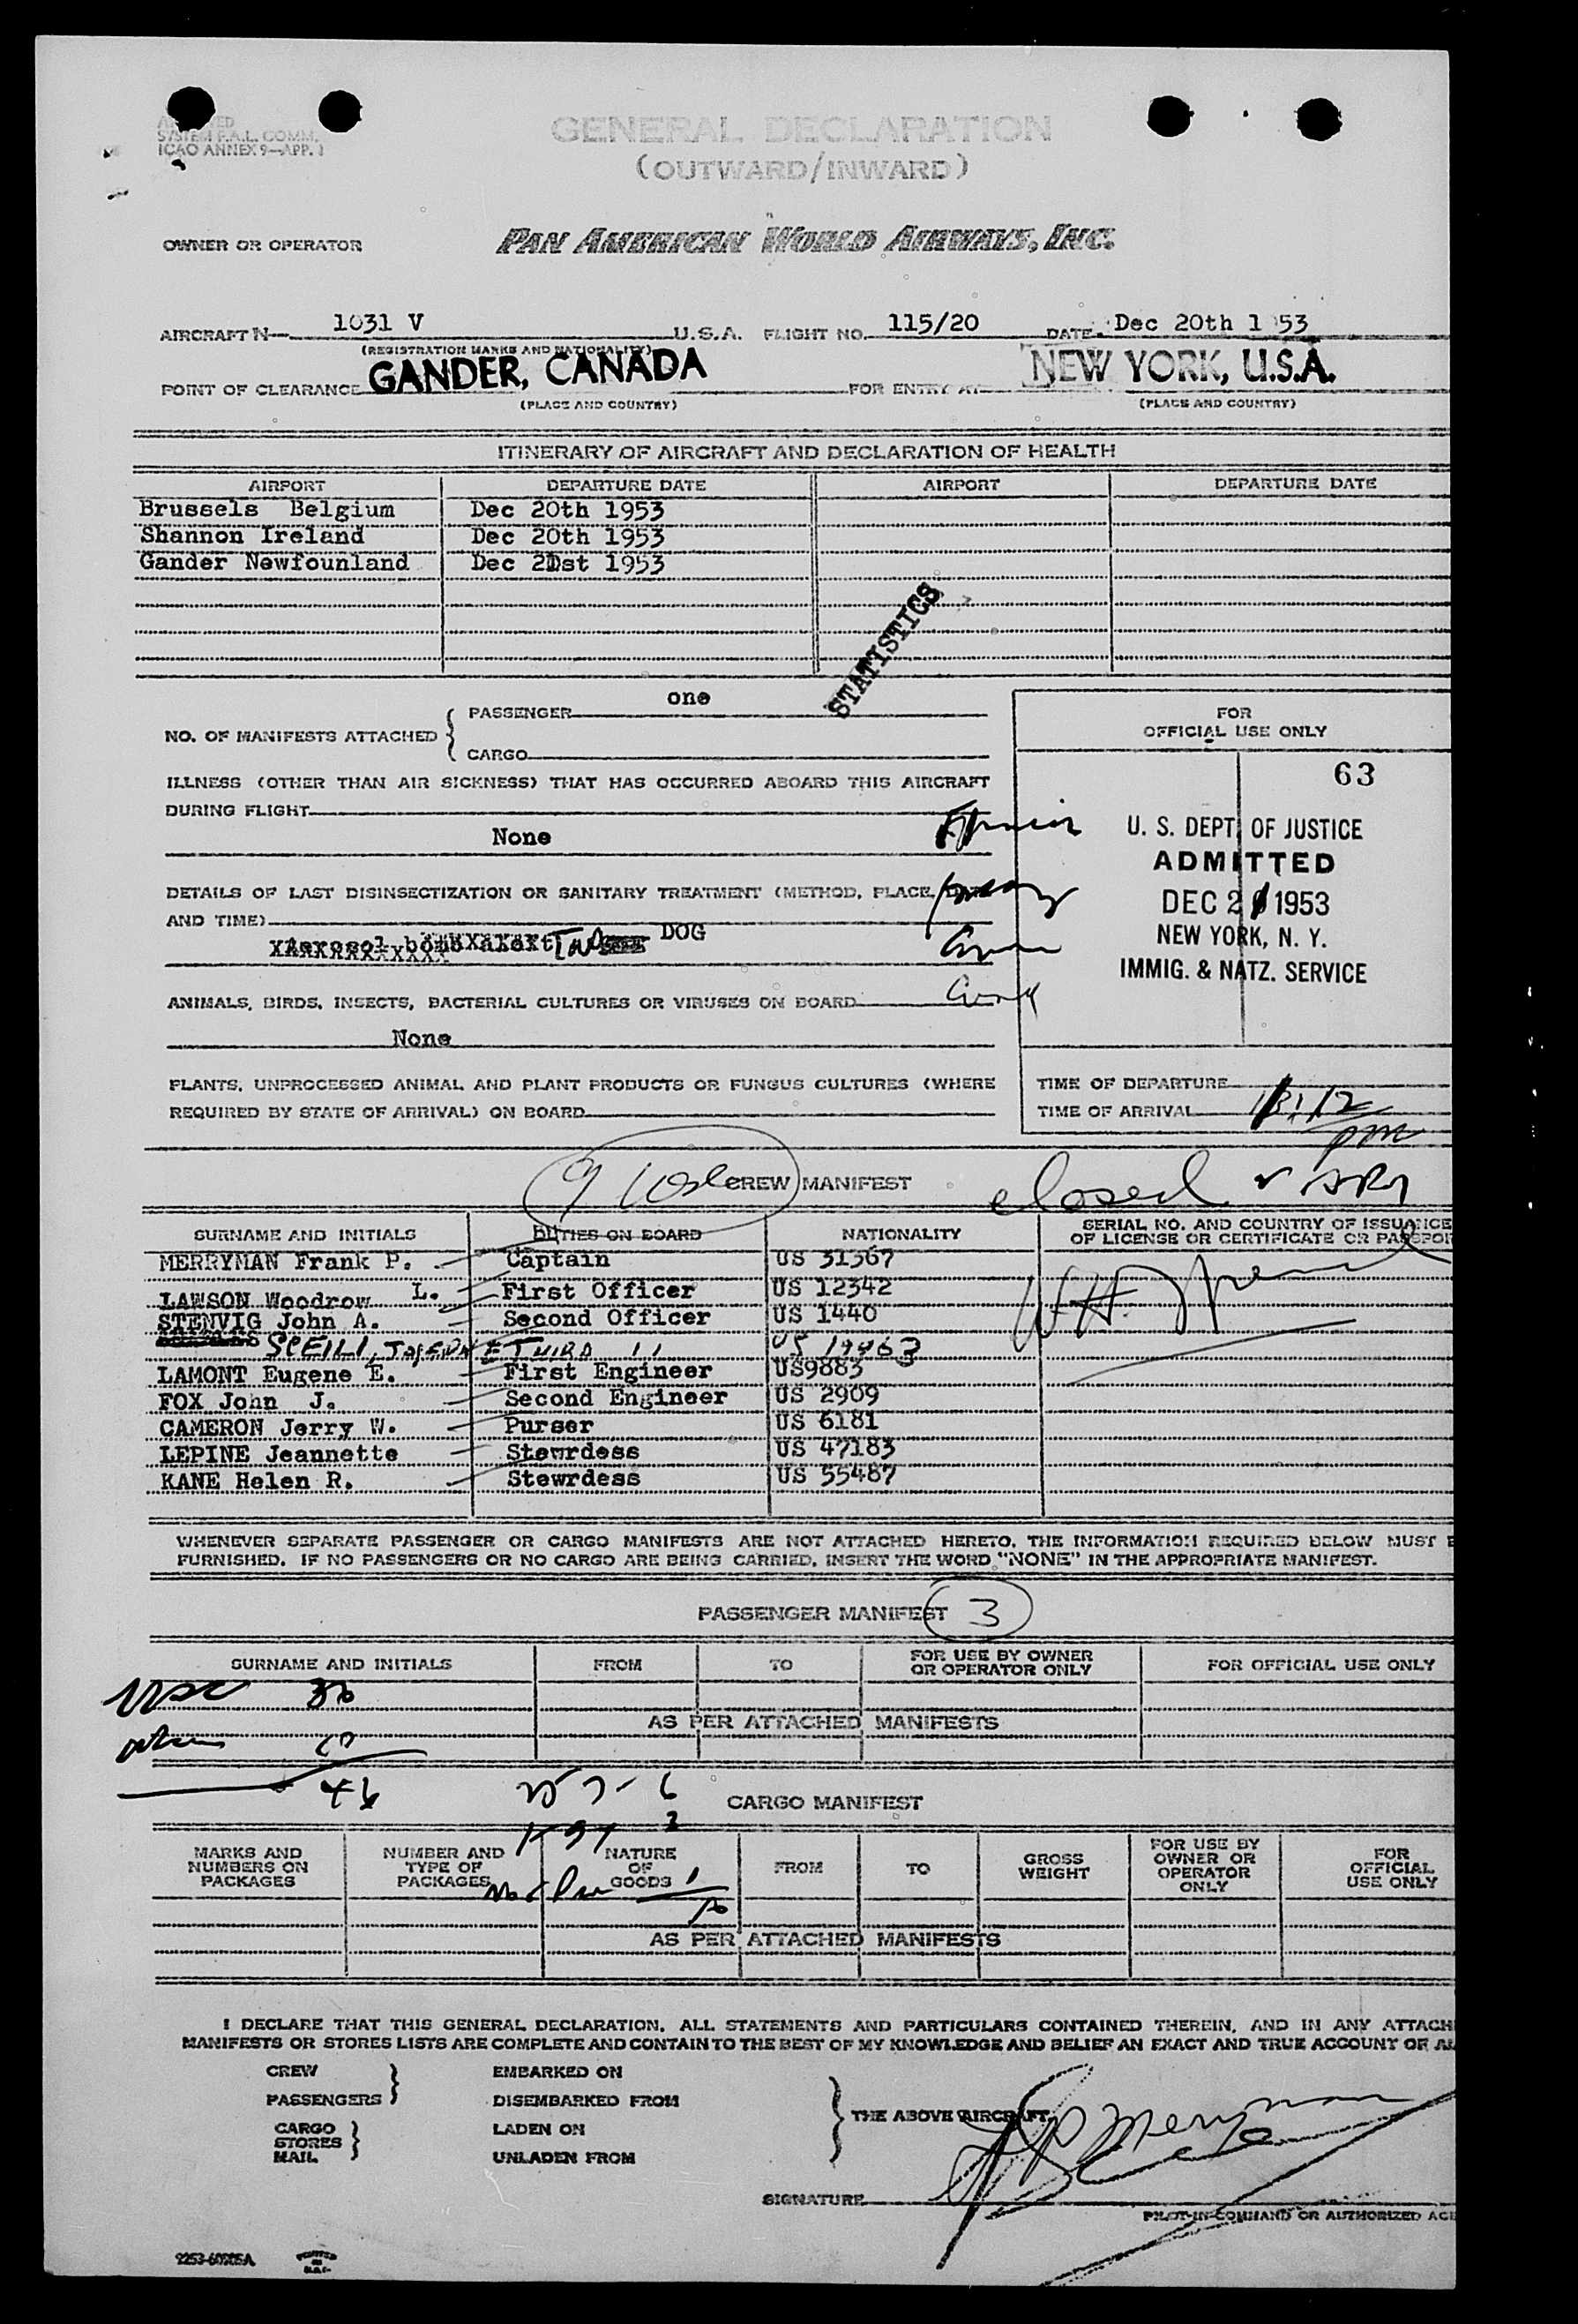 SYSTEM F.A.L. COMM.
ICAO ANNEX 9—APP. 1
GENERAL DECLARATION
(OUTWARD/INWARD)
OWNER OR OPERATOR PAN AMERICAN WORLD AIRWAYS, INC.
AIRCRAFT N— 1031 V U.S.A. FLIGHT NO. 115/20 DATE Dec 20th 1 53
(REGISTRATION MARKS AND NATIONALITY)
POINT OF CLEARANCE GANDER, CANADA FOR ENTRY AT NEW YORK, U.S.A.
(PLACE AND COUNTRY) (PLACE AND COUNTRY)
ITINERARY OF AIRCRAFT AND DECLARATION OF HEALTH
AIRPORT DEPARTURE DATE AIRPORT DEPARTURE DATE
Brussels Belgium Dec 20th 1953
Shannon Ireland Dec 20th 1953
Gander Newfounland Dec 21st 1953
STATISTICS
NO. OF MANIFESTS ATTACHED
PASSENGER one
CARGO
ILLNESS (OTHER THAN AIR SICKNESS) THAT HAS OCCURRED ABOARD THIS AIRCRAFT
DURING FLIGHT
None
DETAILS OF LAST DISINSECTIZATION OR SANITARY TREATMENT (METHOD, PLACE,
AND TIME)
Aerosol bomb DOG
ANIMALS, BIRDS, INSECTS, BACTERIAL CULTURES OR VIRUSES ON BOARD
None
PLANTS, UNPROCESSED ANIMAL AND PLANT PRODUCTS OR FUNGUS CULTURES (WHERE
REQUIRED BY STATE OF ARRIVAL) ON BOARD
FOR
OFFICIAL USE ONLY
63
U. S. DEPT. OF JUSTICE
ADMITTED
DEC 2 1953
NEW YORK, N. Y.
IMMIG. & NATZ. SERVICE
TIME OF DEPARTURE
TIME OF ARRIVAL
pm
9 CREW MANIFEST closed
SURNAME AND INITIALS DUTIES ON BOARD NATIONALITY SERIAL NO. AND COUNTRY OF ISSUANCE
OF LICENSE OR CERTIFICATE OR PASSPOR
MERRYMAN Frank P. Captain US 31367
LAWSON Woodrow L. First Officer US 12342
STENVIG John A. Second Officer US 1440
THIRD 11 US 19463
LAMONT Eugene E. First Engineer US9883
FOX John J. Second Engineer US 2909
CAMERON Jerry W. Purser US 6181
LEPINE Jeannette Stewrdess US 47183
KANE Helen R. Stewrdess US 55487
WHENEVER SEPARATE PASSENGER OR CARGO MANIFESTS ARE NOT ATTACHED HERETO, THE INFORMATION REQUIRED BELOW MUST B
FURNISHED. IF NO PASSENGERS OR NO CARGO ARE BEING CARRIED, INSERT THE WORD "NONE" IN THE APPROPRIATE MANIFEST.
PASSENGER MANIFEST 3
SURNAME AND INITIALS FROM TO FOR USE BY OWNER
OR OPERATOR ONLY FOR OFFICIAL USE ONLY
AS PER ATTACHED MANIFESTS
CARGO MANIFEST
MARKS AND
NUMBERS ON
PACKAGES
NUMBER AND
TYPE OF
PACKAGES
NATURE
OF
GOODS
FROM
TO
GROSS
WEIGHT
FOR USE BY
OWNER OR
OPERATOR
ONLY
FOR
OFFICIAL
USE ONLY
AS PER ATTACHED MANIFESTS
I DECLARE THAT THIS GENERAL DECLARATION, ALL STATEMENTS AND PARTICULARS CONTAINED THEREIN, AND IN ANY ATTACH
MANIFESTS OR STORES LISTS ARE COMPLETE AND CONTAIN TO THE BEST OF MY KNOWLEDGE AND BELIEF AN EXACT AND TRUE ACCOUNT OF AL
CREW EMBARKED ON
PASSENGERS DISEMBARKED FROM
CARGO LADEN ON
STORES
MAIL UNLADEN FROM
THE ABOVE AIRCRAFT
F P Merryman
SIGNATURE
PILOT-IN-COMMAND OR AUTHORIZED AGE
PRINTED
IN
U.S.A.